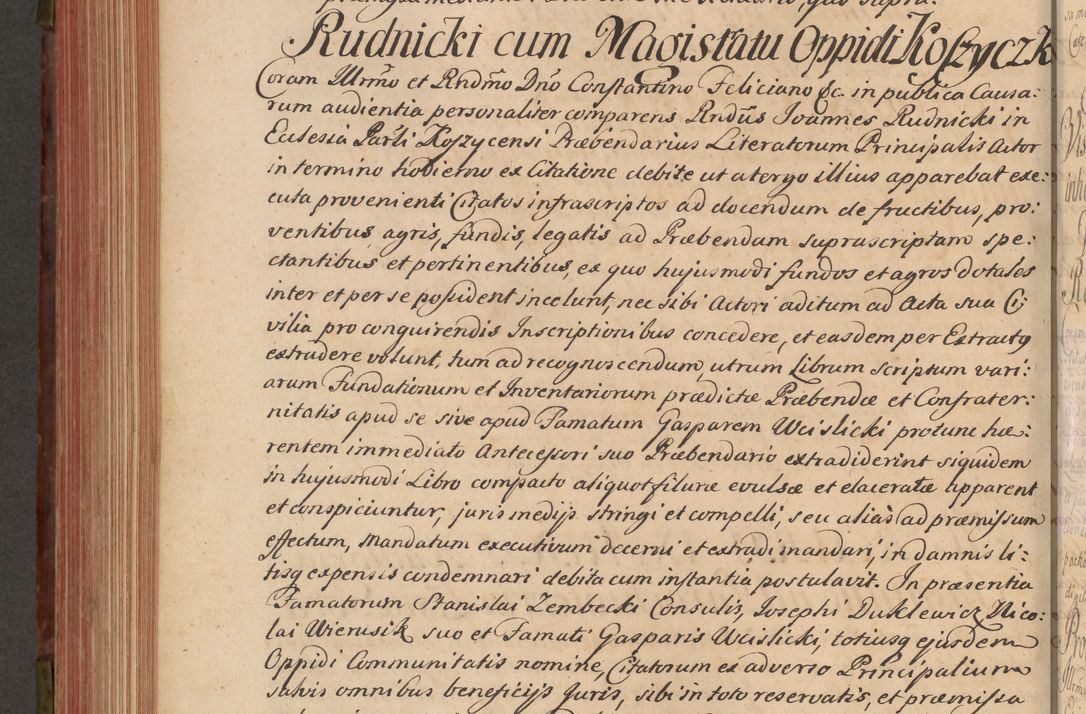 Rudnicki cum Magistratu Oppidi Koszyczk
Coram Illrmo et Rndmo Dno Constantino Feliciano &c. in publica Causa:
rum audientia personaliter comparens Rndus Joannes Rudnicki in
Ecclesia Parli Koszycensi Præbendarius Literatorum Principalis Actor
in termino hodierno ex Citatione debite ut a tergo illius apparebat exe:
cuta provenienti Citatos infrascriptos ad docendum de fructibus, pro:
ventibus, agris, fundis, legatis ad Præbendam suprascriptam spe:
ctantibus et pertinentibus, ex quo hujusmodi fundos et agros dotales
inter et per se possident incolunt, nec sibi Actori aditum ad Acta sua Ci:
vilia pro conquirendis Inscriptionibus concedere, et easdem per Extractus
extradere volunt, tum ad recognoscendum, utrum Librum scriptum vari:
arum Fundationum et Inventariorum prædictæ Præbendæ et Confrater:
nitatis apud se sive apud Famatum Gasparem Wcislicki protunc hæ:
rentem immediato Antecessori suo Præbendario extradiderint siquidem
in hujusmodi Libro compacto aliquot filuræ evulsæ et elaceratæ apparent
et conspiciuntur, juris medijs stringi et compelli, seu alias ad præmissum
effectum, Mandatum executivum decerni et extradi mandari, in damnis li:
tisq expensis condemnari debita cum instantia postulavit. In præsentia
Famatorum Stanislai Zembecki Consulis, Josephi Duklewicz Nico:
lai Wierusik suo et Famati Gasparis Wcislicki, totiusq ejusdem
Oppidi Communitatis nomine, Citatorum ex adverso Principalium
salvis omnibus beneficijs Juris, sibi in toto reservatis, et præmissa